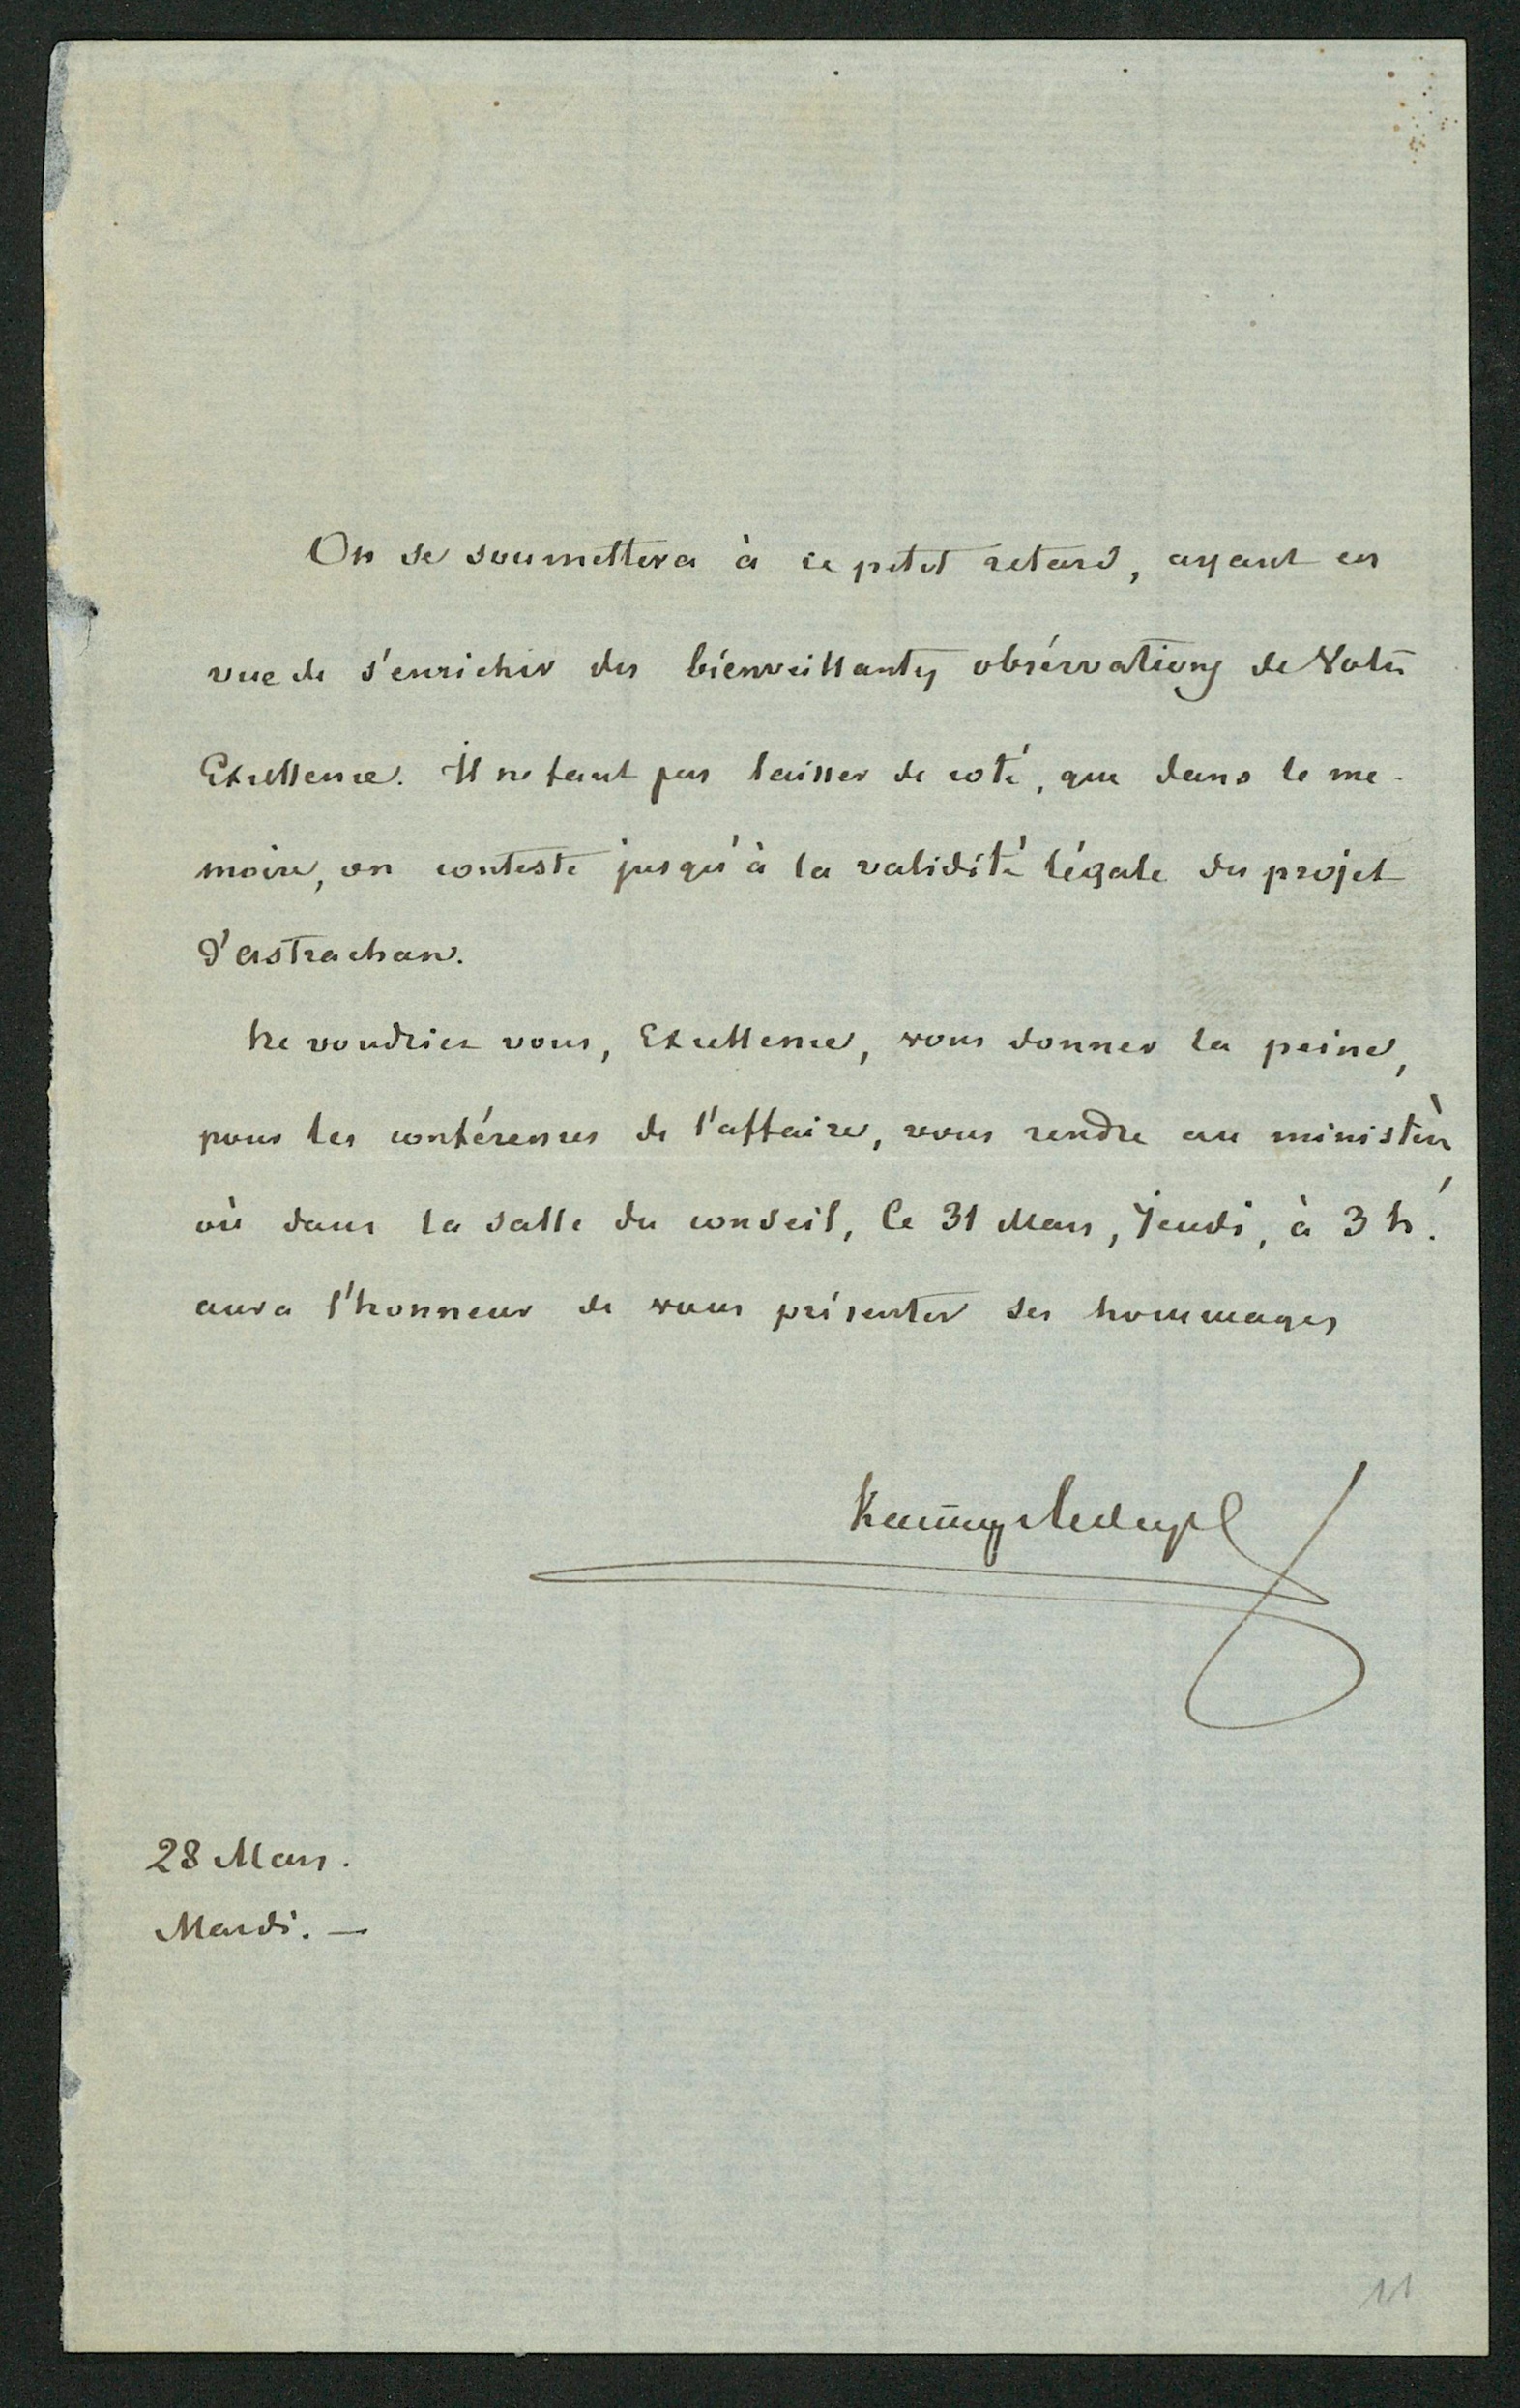 On se soumettera à ce petit retard, ayant en
vue de s'enrichir des bienveillantes obsérvations de Votre
Exellence. Il ne faut pas laisser de coté, que dans le me-
moire, on conteste jusqu'à la validité légale du projet
d'astrachan.
Ne voudriez vous, Exellence, vous donner la peine,
pour les conférences de l'affaire, vous rendre au ministère
où dans la salle du conseil, le 31 Mars, Jeudi, à 3 h.
aura l'honneur de vous présenter ses hommages
28 Mars.
Mardi. —
11